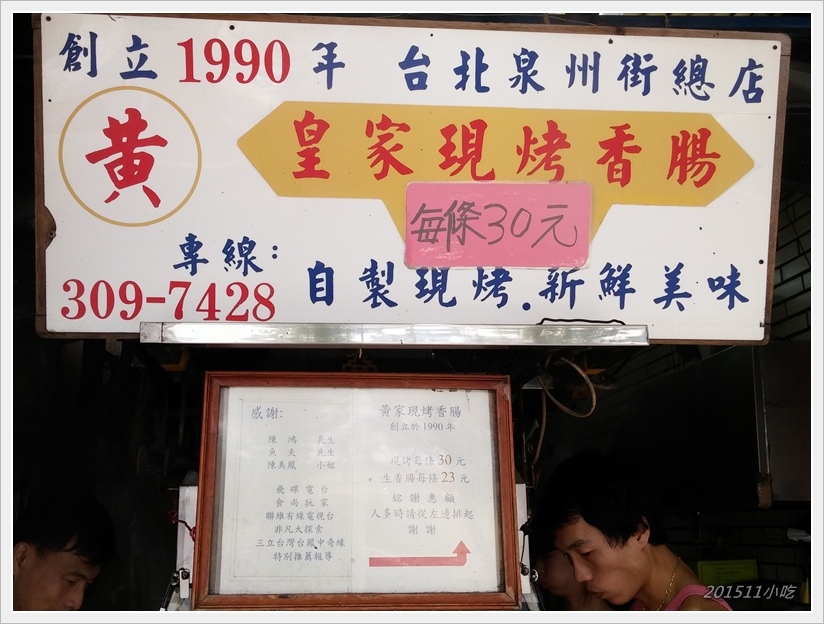 創立1990年 台北泉州街總店
黃
皇家現烤香腸
每條30元
專線:
309-7428
自製現烤.新鮮美味
感謝:
陳鴻 先生
魚夫 先生
陳美鳳 小姐
飛碟電台
食尚玩家
聯維有線電視台
非凡大探索
三立台灣台鳳中奇緣
特別推薦報導
黃家現烤香腸
創立於1990年
現烤每條30元
生香腸每條23元
銘謝惠顧
人多時請從左邊排起
謝謝
201511小吃